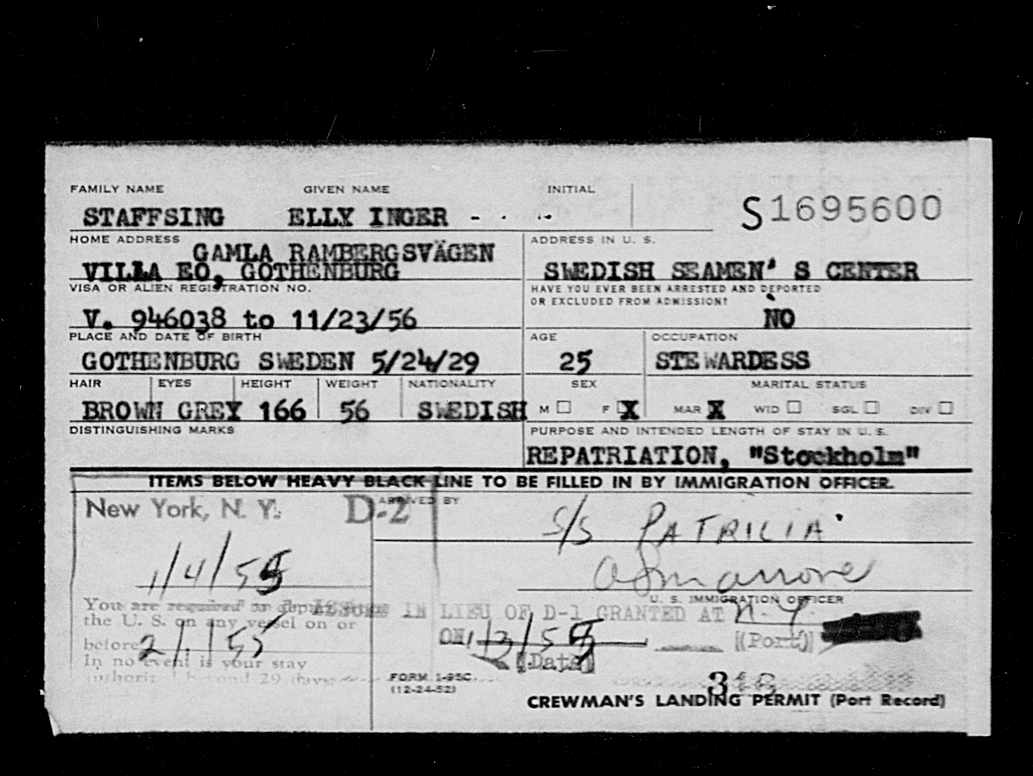 FAMILY NAME GIVEN NAME INITIAL
STAFFSING ELLY INGER - - -- S1695600
HOME ADDRESS ADDRESS IN U. S.
GAMLA RAMBERGSVÄGEN
VILLA EO, GOTHENBURG SWEDISH SEAMEN'S CENTER
VISA OR ALIEN REGISTRATION NO. HAVE YOU EVER BEEN ARRESTED AND DEPORTED
OR EXCLUDED FROM ADMISSION?
V. 946038 to 11/23/56 NO
PLACE AND DATE OF BIRTH AGE OCCUPATION
GOTHENBURG SWEDEN 5/24/29 25 STEWARDESS
HAIR EYES HEIGHT WEIGHT NATIONALITY SEX MARITAL STATUS
BROWN GREY 166 56 SWEDISH M ☐ F X MAR X WID ☐ SGL ☐ DIV ☐
DISTINGUISHING MARKS PURPOSE AND INTENDED LENGTH OF STAY IN U. S.
REPATRIATION, "Stockholm"
ITEMS BELOW HEAVY BLACK LINE TO BE FILLED IN BY IMMIGRATION OFFICER.
New York, N. Y. D-2 ARRIVED BY
S/S PATRICIA
1/4/55
U. S. IMMIGRATION OFFICER
You are required to depart
ISSUED IN LIEU OF D-1 GRANTED AT N.Y.
the U. S. on any vessel on or
ON 1/3/55 (Port)
before 2/1/55 (Date)
In no event is your stay
authoriz beyond 29 days
FORM I-95C
(12-24-52)
316
CREWMAN'S LANDING PERMIT (Port Record)